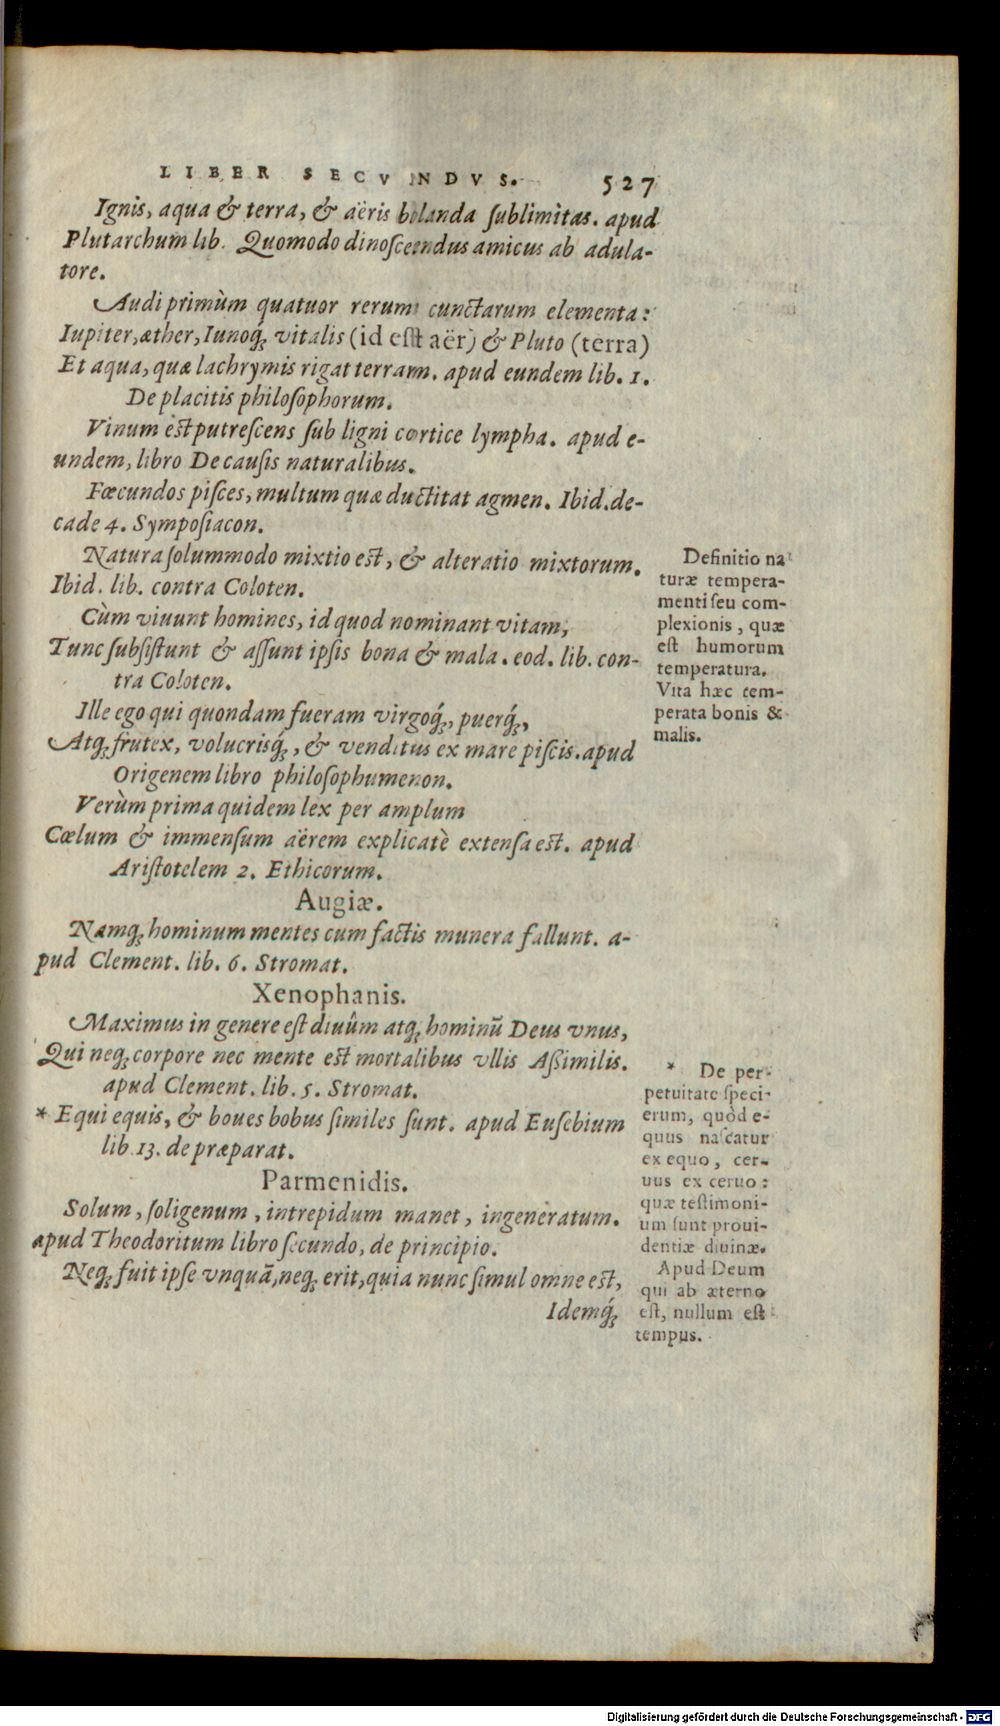 LIBER SECVNDVS. 527
Ignis, aqua & terra, & aëris blanda ſublimitas. apud
Plutarchum lib. Quomodo dinoſcendus amicus ab adula-
tore.
Audi primùm quatuor rerum cunctarum elementa:
Iupiter, æther, Iunoq́; vitalis (id eſt aër) & Pluto (terra)
Et aqua, quæ lachrymis rigat terram. apud eundem lib. 1.
De placitis philoſophorum.
Vinum eſt putreſcens ſub ligni cortice lympha. apud e-
undem, libro De cauſis naturalibus.
Fœcundos piſces, multum quæ ductitat agmen. Ibid. de-
cade 4. Sympoſiacon.
Natura ſolummodo mixtio eſt, & alteratio mixtorum.
Ibid. lib. contra Coloten.
Cùm viuunt homines, id quod nominant vitam,
Tunc ſubſiſtunt & aſſunt ipſis bona & mala. eod. lib. con-
tra Coloten.
Ille ego qui quondam fueram virgoq́;, puerq́;,
Atq; frutex, volucrisq́;, & venditus ex mare piſcis. apud
Origenem libro philoſophumenon.
Verùm prima quidem lex per amplum
Cœlum & immenſum aërem explicatè extenſa eſt. apud
Ariſtotelem 2. Ethicorum.
Augiæ.
Namq; hominum mentes cum factis munera fallunt. a-
pud Clement. lib. 6. Stromat.
Xenophanis.
Maximus in genere eſt diuûm atq; hominũ Deus vnus,
Qui neq; corpore nec mente eſt mortalibus vllis Aßimilis.
apud Clement. lib. 5. Stromat.
* Equi equis, & boues bobus ſimiles ſunt. apud Euſebium
lib. 13. de præparat.
Parmenidis.
Solum, ſoligenum, intrepidum manet, ingeneratum.
apud Theodoritum libro ſecundo, de principio.
Neq; fuit ipſe vnquã, neq; erit, quia nunc ſimul omne eſt,
Idemq́;
Definitio na
turæ tempera-
menti ſeu com-
plexionis, quæ
eſt humorum
temperatura.
Vita hæc tem-
perata bonis &
malis.
* De per-
petuitate ſpeci-
erum, quòd e-
quus naſcatur
ex equo, cer-
uus ex ceruo:
quæ teſtimoni-
um ſunt proui-
dentiæ diuinæ.
Apud Deum
qui ab æterno
eſt, nullum eſt
tempus.
Digitalisierung gefördert durch die Deutsche Forschungsgemeinschaft - DFG